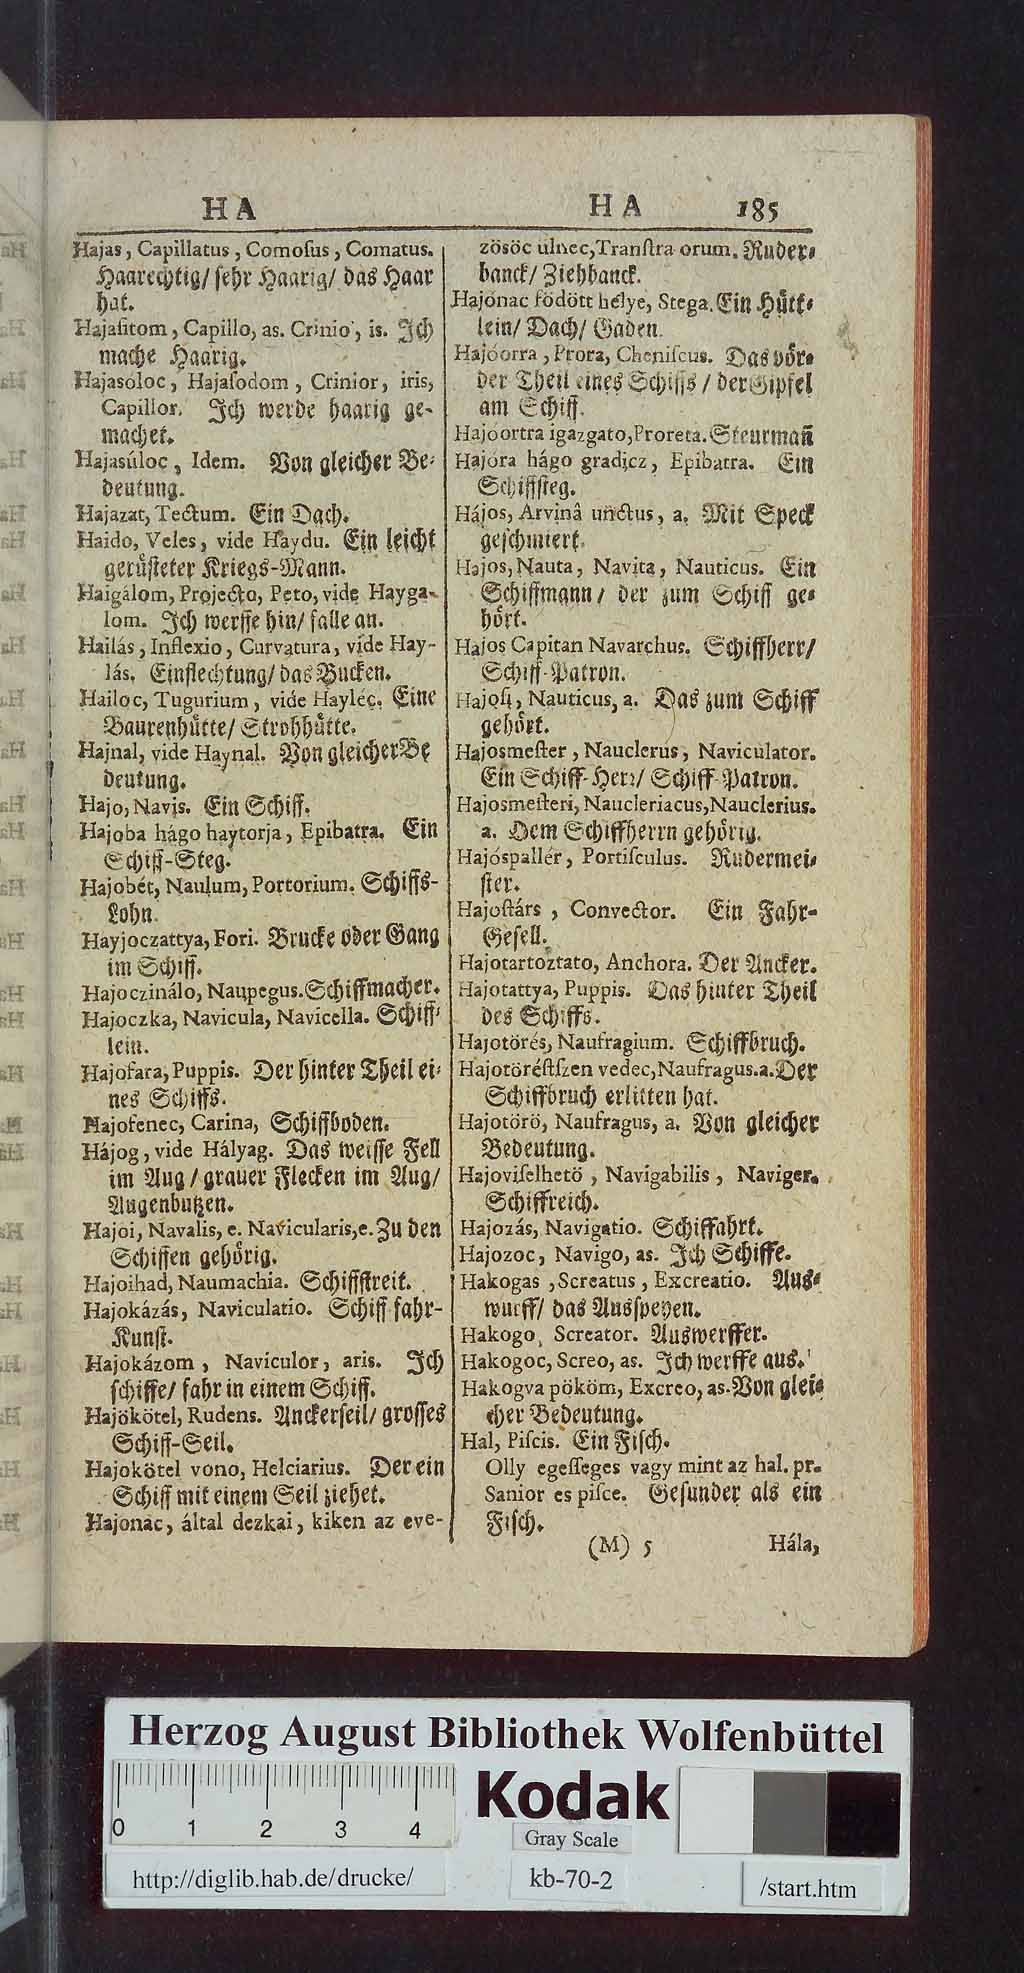 HA
Hajas, Capillatus, Comoſus, Comatus.
Haarechtig/ ſehr Haarig/ das Haar
hat.
Hajaſitom, Capillo, as. Crinio, is. Ich
mache Haarig.
Hajasóloc, Hajaſodom, Crinior, iris,
Capillor. Ich werde haarig ge-
machet.
Hajasúloc, Idem. Von gleicher Be-
deutung.
Hajazat, Tectum. Ein Dach.
Haido, Veles, vide Haydu. Ein leicht
gerüſteter Kriegs-Mann.
Haigálom, Projecto, Peto, vide Hayga-
lom. Ich werffe hin/ falle an.
Hailás, Inflexio, Curvatura, vide Hay-
lás. Einflechtung/ das Bucken.
Hailoc, Tugurium, vide Hayléc. Eine
Baurenhütte/ Strohhütte.
Hajnal, vide Haynal. Von gleicher Be
deutung.
Hajo, Navis. Ein Schiff.
Hajoba hágo haytorja, Epibatra. Ein
Schiff-Steg.
Hajobét, Naulum, Portorium. Schiffs-
Lohn.
Hayjoczattya, Fori. Brucke oder Gang
im Schiff.
Hajoczinálo, Naupegus. Schiffmacher.
Hajoczka, Navicula, Navicella. Schiff-
lein.
Hajofara, Puppis. Der hinter Theil ei-
nes Schiffs.
Hajofenec, Carina, Schiffboden.
Hájog, vide Hályag. Das weiſſe Fell
im Aug/ grauer Flecken im Aug/
Augenbutzen.
Hajoi, Navalis, e. Navicularis, e. Zu den
Schiffen gehörig.
Hajoihad, Naumachia. Schiffſtreit.
Hajokázás, Naviculatio. Schiff-fahr-
Kunſt.
Hajokázom, Naviculor, aris. Ich
ſchiffe/ fahr in einem Schiff.
Hajökötel, Rudens. Anckerſeil/ groſſes
Schiff-Seil.
Hajokötel vono, Helciarius. Der ein
Schiff mit einem Seil ziehet.
Hajonac, által dezkai, kiken az eve-
HA 185
zösöc ulnec, Tranſtra orum. Ruder-
banck/ Ziehbanck.
Hajónac födött hélye, Stega. Ein Hütt-
lein/ Dach/ Gaden.
Hajóorra, Prora, Cheniſcus. Das vör-
der Theil eines Schiffs/ der Gipfel
am Schiff.
Hajóortra igazgato, Proreta. Steurmañ
Hajóra hágo gradicz, Epibatra. Ein
Schiffſteg.
Hájos, Arvinâ unctus, a. Mit Speck
geſchmiert.
Hajos, Nauta, Navita, Nauticus. Ein
Schiffmann/ der zum Schiff ge-
hört.
Hajos Capitan Navarchus. Schiffherr/
Schiff-Patron.
Hajoſi, Nauticus, a. Das zum Schiff
gehört.
Hajosmeſter, Nauclerus, Naviculator.
Ein Schiff-Herr/ Schiff-Patron.
Hajosmeſteri, Naucleriacus, Nauclerius.
a. Dem Schiffherrn gehörig.
Hajóspallér, Portiſculus. Rudermei-
ſter.
Hajoſtárs, Convector. Ein Fahr-
Geſell.
Hajotartoztato, Anchora. Der Ancker.
Hajotattya, Puppis. Das hinter Theil
des Schiffs.
Hajotörés, Naufragium. Schiffbruch.
Hajotöréſtſzen vedec, Naufragus. a. Der
Schiffbruch erlitten hat.
Hajotörö, Naufragus, a. Von gleicher
Bedeutung.
Hajoviſelhetö, Navigabilis, Naviger.
Schiffreich.
Hajozás, Navigatio. Schiffahrt.
Hajozoc, Navigo, as. Ich Schiffe.
Hakogas, Screatus, Excreatio. Aus-
wurff/ das Ausſpeyen.
Hakogo, Screator. Auswerffer.
Hakogoc, Screo, as. Ich werffe aus.
Hakogva pököm, Excreo, as. Von glei-
cher Bedeutung.
Hal, Piſcis. Ein Fiſch.
Olly egeſſeges vagy mint az hal. pr.
Sanior es piſce. Geſunder als ein
Fiſch.
(M) 5 Hála,
Herzog August Bibliothek Wolfenbüttel
0 1 2 3 4
Kodak
Gray Scale
http://diglib.hab.de/drucke/ kb-70-2 /start.htm